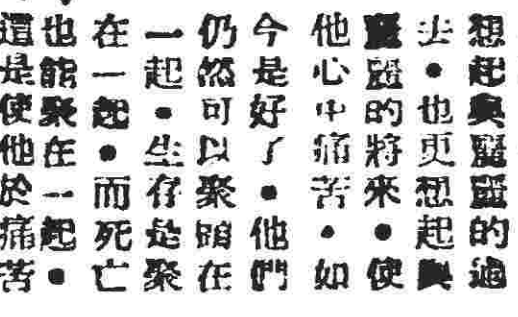 想起與麗麗的過
去・也更想起與
麗麗的將來・使
他心中痛苦・如
今是好了・他們
仍然可以聚在
一起・生存是聚
在一起・而死亡
也能聚在一起・
這是使他於痛苦